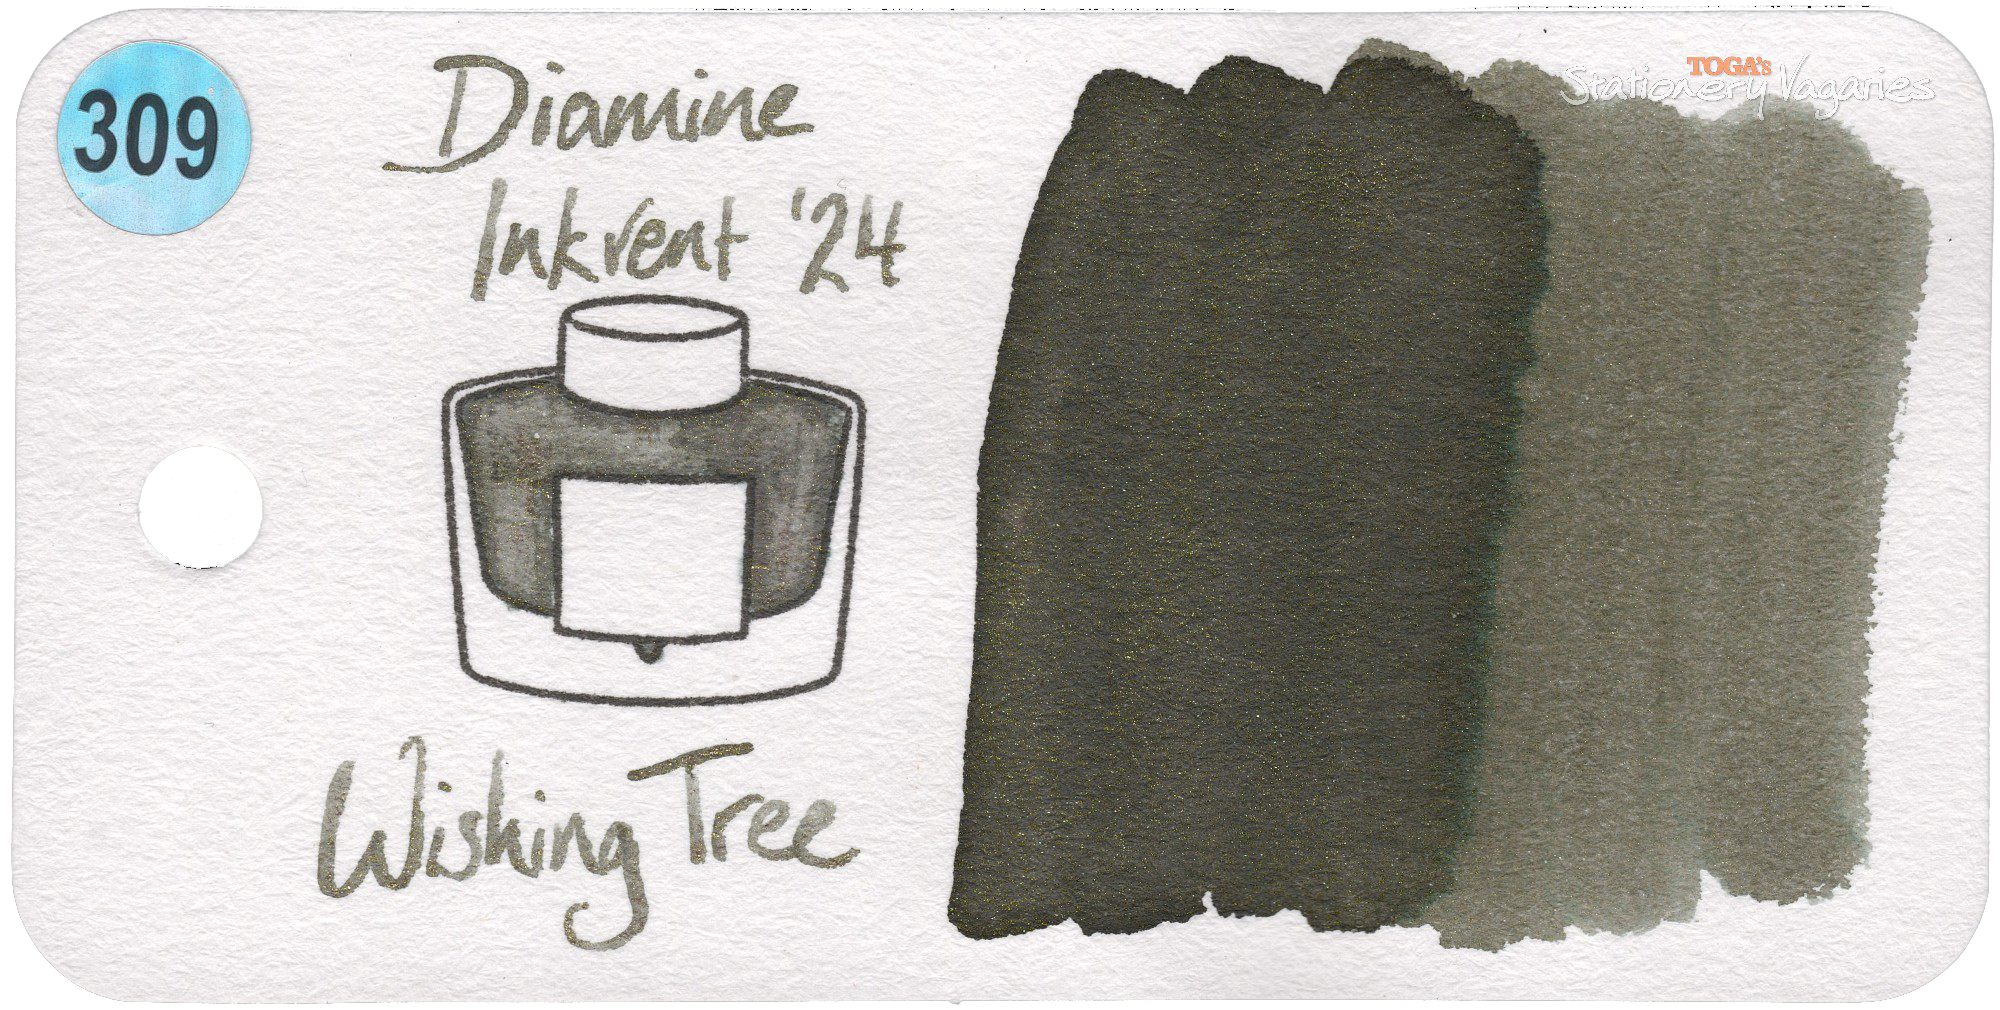 309
Diamine
Inkvent '24
Wishing Tree
TOGA's
Stationery Vagaries